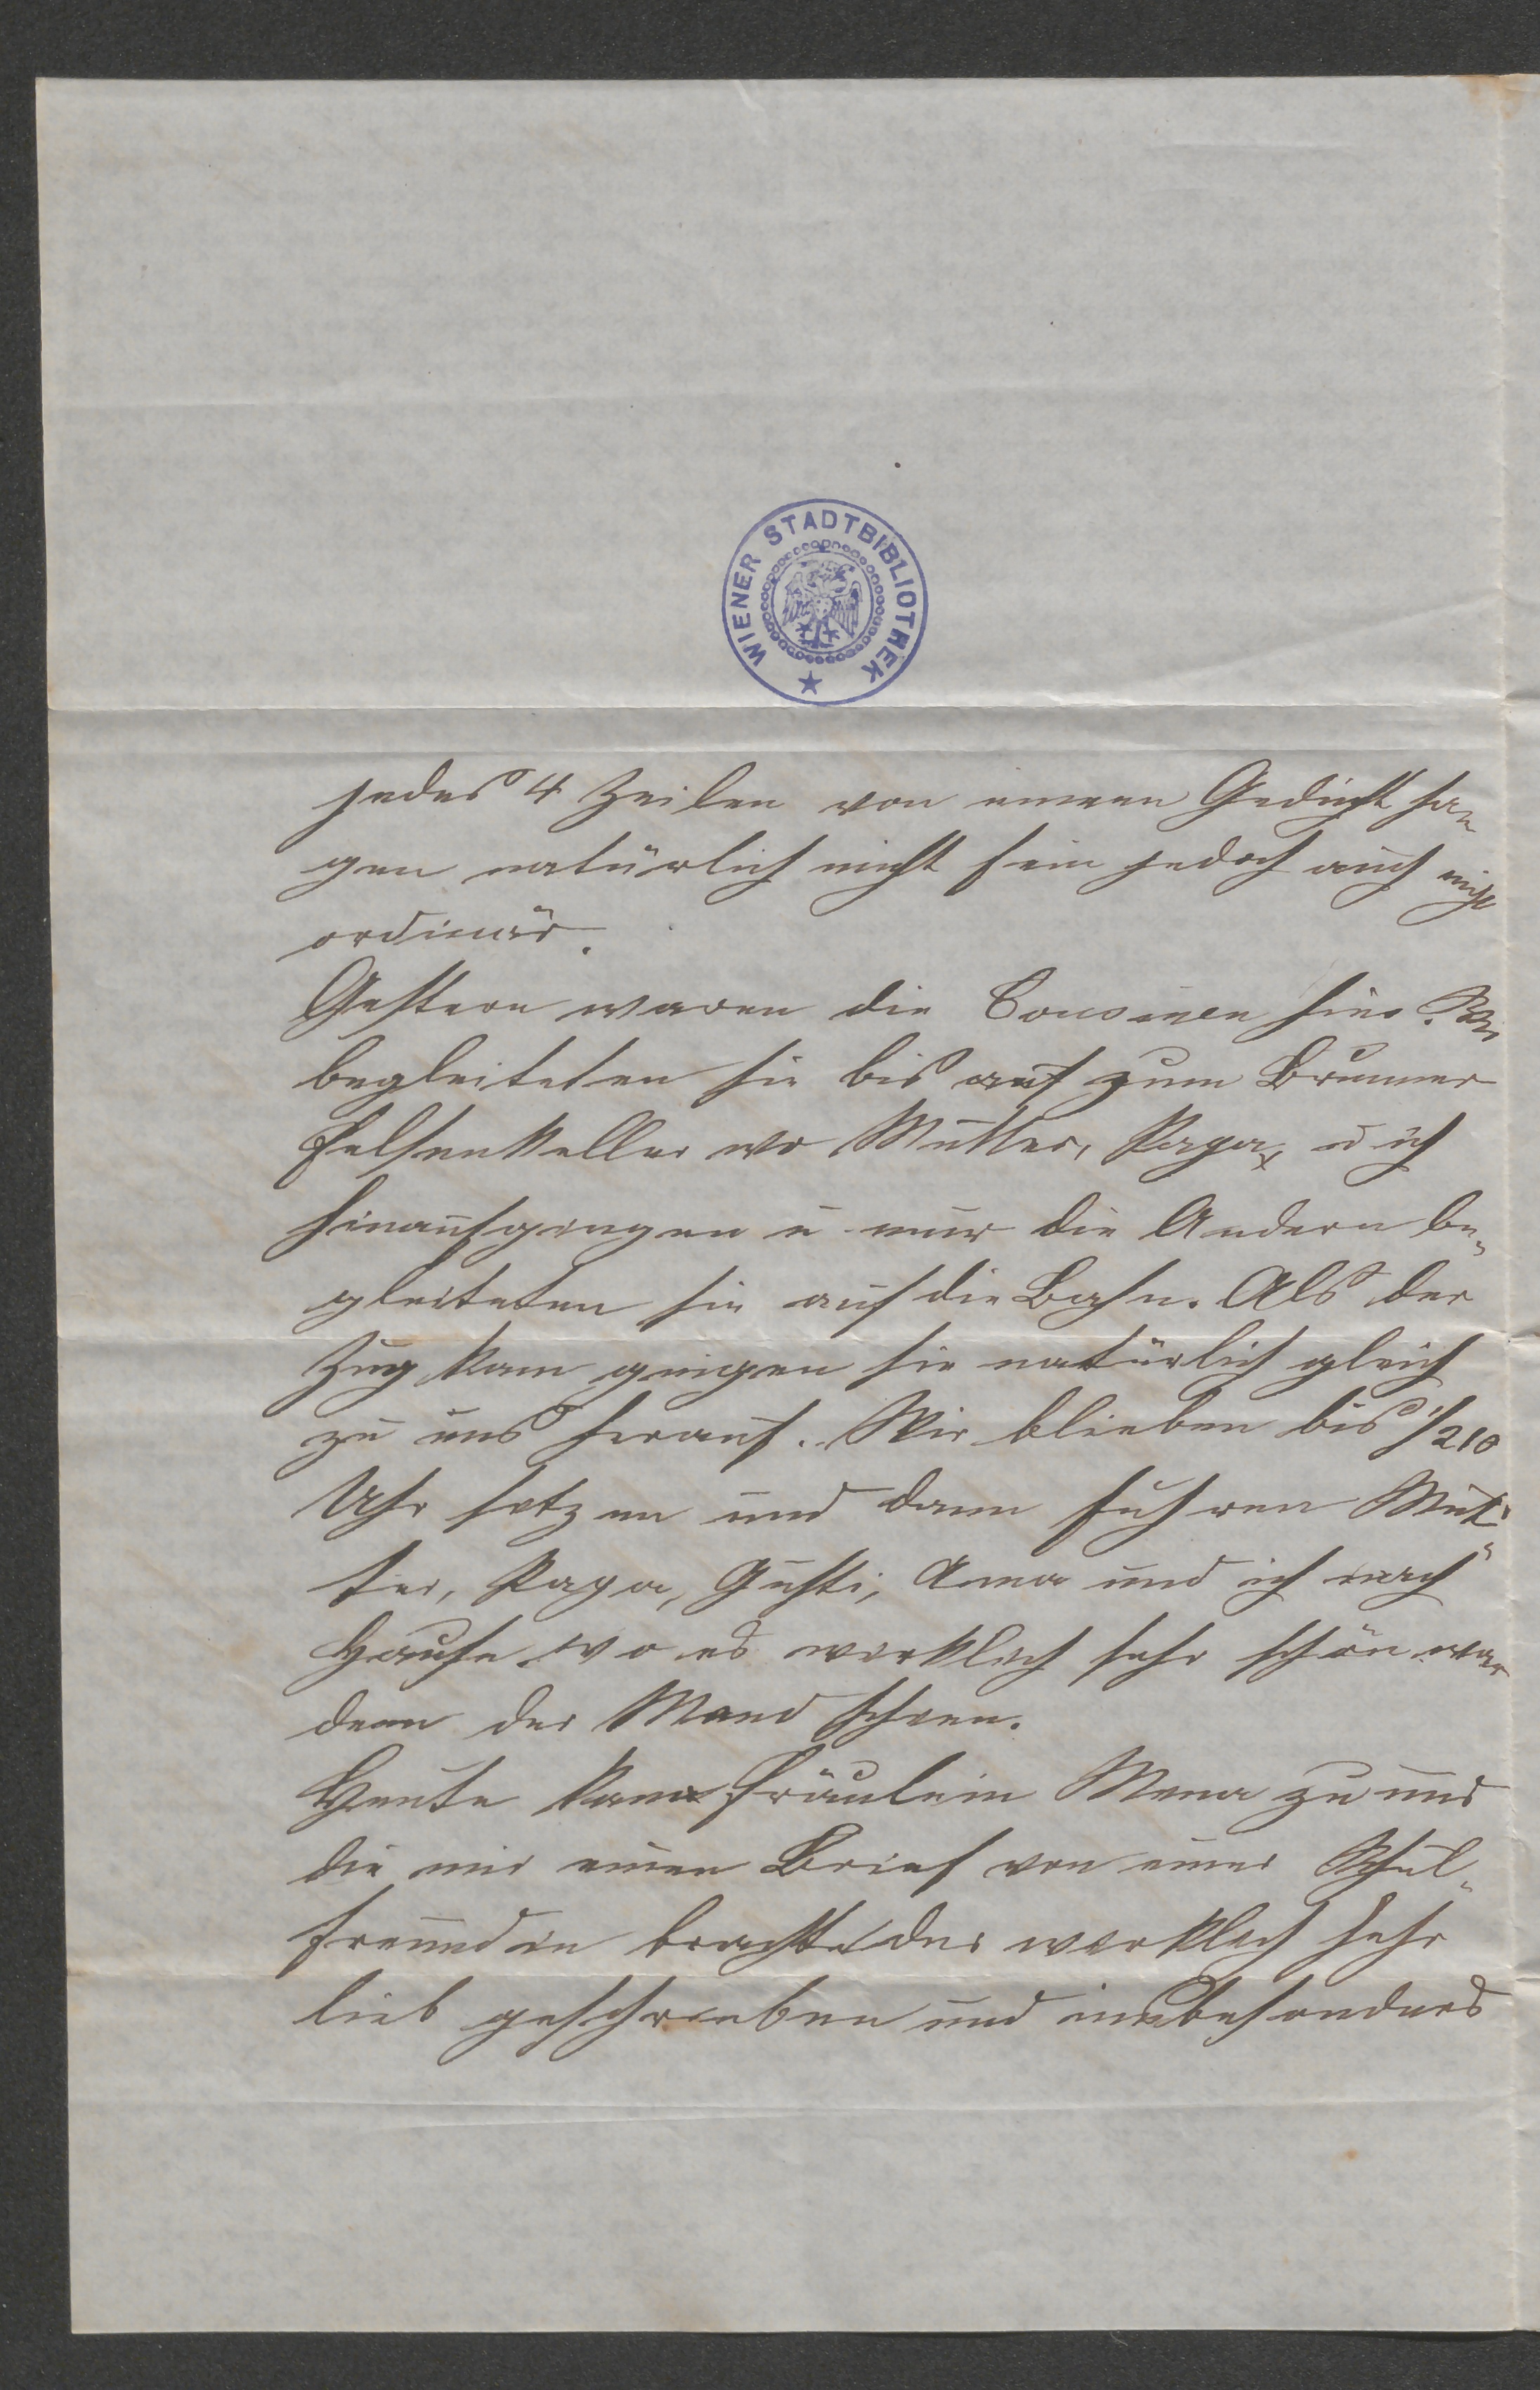 WIENER STADTBIBLIOTHEK
jedes 4 Zeilen von einem Gedicht sa-
gen natürlich nicht fein jedoch auch nicht
ordinär.
Gestern waren die Cousinen hier. Wir
begleiteten sie bis auf zum Brunner
Felsenkeller wo Mutter, Papa, u ich
hinaufgingen u nur die Andern be-
gleiteten sie auf die Bahn. Als der
Zug kam gingen sie natürlich gleich
zu uns herauf. Wir blieben bis 1/2 10
Uhr sitzen und dann fuhren Mut-
ter, Papa, Gusti, Anna und ich nach
Hause wo es wirklich sehr schön war
denn der Mond schien.
Heute kam Fräulein Mena zu uns
die mir einen Brief von einer Schul-
freundin brachte der wirklich sehr
lieb geschrieben und insbesonders